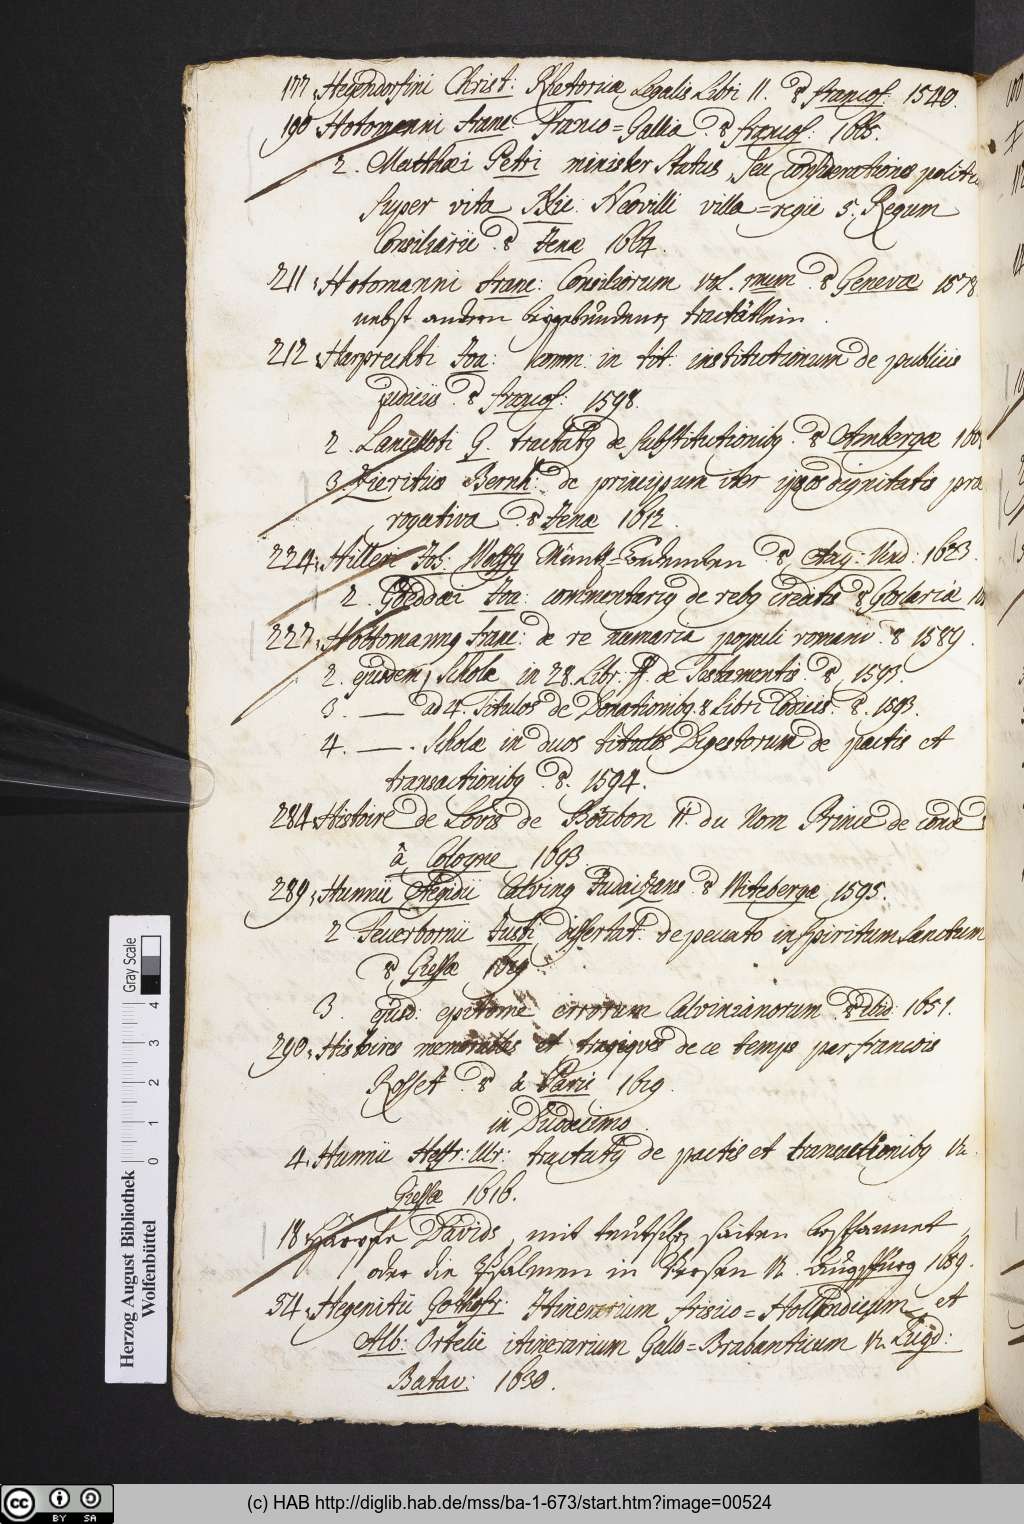 177. Hegendorfini Christ: Rhetoricæ Legalis Libri II. 8 francof. 1540.
190 Hotomanni franc: Franco=Gallia 8 francof: 1665.
2. Matthæi Petri minister Status, seu considerationes politicæ
super vita Nic: Neovilli villa=regii 5. Regum
Consiliarii 8 Jenæ 1664.
211. Hotomanni franc: Consiliorum vol. 8 Genevæ 1578
nebst andern beygebundenen tractätlein.
212. Harprechti Joa: Comm. in tit. institutionum de publicis
judiciis 8 francof: 1598.
2. Lancelloti G. tractatq de substitutionibq. 8 Ambergæ
3. Zieritius Bernh: de principum inter ipsos dignitatis præ
rogativa 8 Jenæ 1612.
224. Hilleri Joh: Wolffg 8 Aug: Vind: 1623.
2. Goeddæi Joa: commentariq de rebq creatis 8 Goslariæ
227. Hottomannq franc: de re numaria populi romani. 8 1589.
2. ejusdem, Scholæ in 28. Libr. ff. de Testamentis. 8, 1595.
3. — ad 4. Titulos de Donationibq 8 Libri Codicis. 8. 1593.
4. —. Scholæ in duos titulos Digestorum de pactis et
transactionibq 8. 1594.
284. Histoire de Lovis de Bourbon II. du Nom Prince de condé
â Cologne 1693.
289. Hunnii Ægidii Calvinq Judaizans 8 Witebergæ, 1595.
2 Feuerbornii Justi dissertat. de peccato in spiritum Sanctum
8 Giessæ 1619
3. ejusd: epitome errorum Calvinianorum 8 ibid: 1651.
290. Histoires memorables et tragiqves de ce temps par francois
Rosset. 8 à Paris 1619.
in Duodecimo.
4. Hunnii Helfr: Ulr: tractatq de pactis et transactionibq 12.
Giessæ 1616.
18. Harpfe Davids, mit teutschen saiten bespannet,
oder die Psalmen in Versen 12. Augspurg 1689.
34. Hegenitii Gothofr: Itinerarium frisio=Hollandicum, et
Alb: Ortelii itinerarium Gallo=Brabanticum 12 Lugd:
Batav: 1630.
Gray Scale
4 3 2 1 0
Herzog August Bibliothek
Wolfenbüttel
cc BY SA
(c) HAB http://diglib.hab.de/mss/ba-1-673/start.htm?image=00524